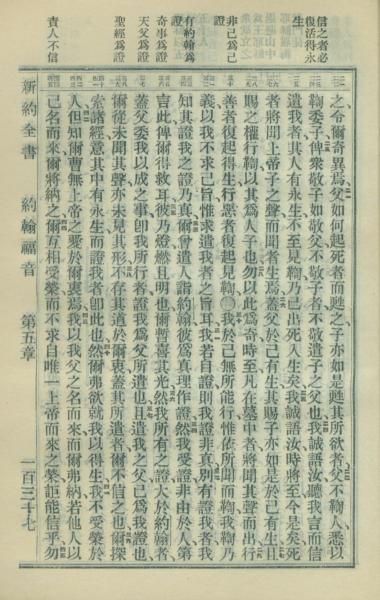 信之者必
復活得永
生
非己爲己
證
有約翰爲
證
奇事爲證
天父爲證
聖經爲證
責人不信
之令爾奇異焉父如何起死者而甦之子亦如是甦其所欲者父不鞫人悉以
鞫委子俾衆敬子如敬父不敬子者不敬遣子之父也我誠語汝聽我言而信
遣我者其人有永生不至見鞫乃已出死入生矣我誠語汝時將至今是矣死
者將聞上帝子之聲而聞者生焉蓋父於己有生其賜子亦如是於己有生且
賜之權行鞫以其爲人子也勿以此爲奇時至凡在墓中者將聞其聲而出行
善者復起得生行惡者復起見鞫〇我於己無所能行惟依所聞而鞫我鞫乃
義以我不求己旨惟求遣我者之旨耳我若自證則我證非真別有證我者我
知其證我之證乃真爾曾遣人詣約翰彼爲真理作證然我受證非由於人第
言此俾爾得救耳彼乃燈燃且明也爾暫喜其光然我所有之證大於約翰者
蓋父委我以成之事卽我所行者證我爲父所遣也且遣我之父已爲我證也
爾從未聞其聲亦未見其形不存其道於爾衷蓋其所遣者爾不信之也爾探
索諸經意其中有永生而證我者卽此也然爾弗欲就我以得生我不受榮於
人但知爾曹無上帝之愛於爾衷焉我以我父之名而來而爾弗納若他人以
己名而來爾將納之爾互相受榮而不求自唯一上帝而來之榮詎能信乎勿
新約全書 約翰福音 第五章 一百三十七